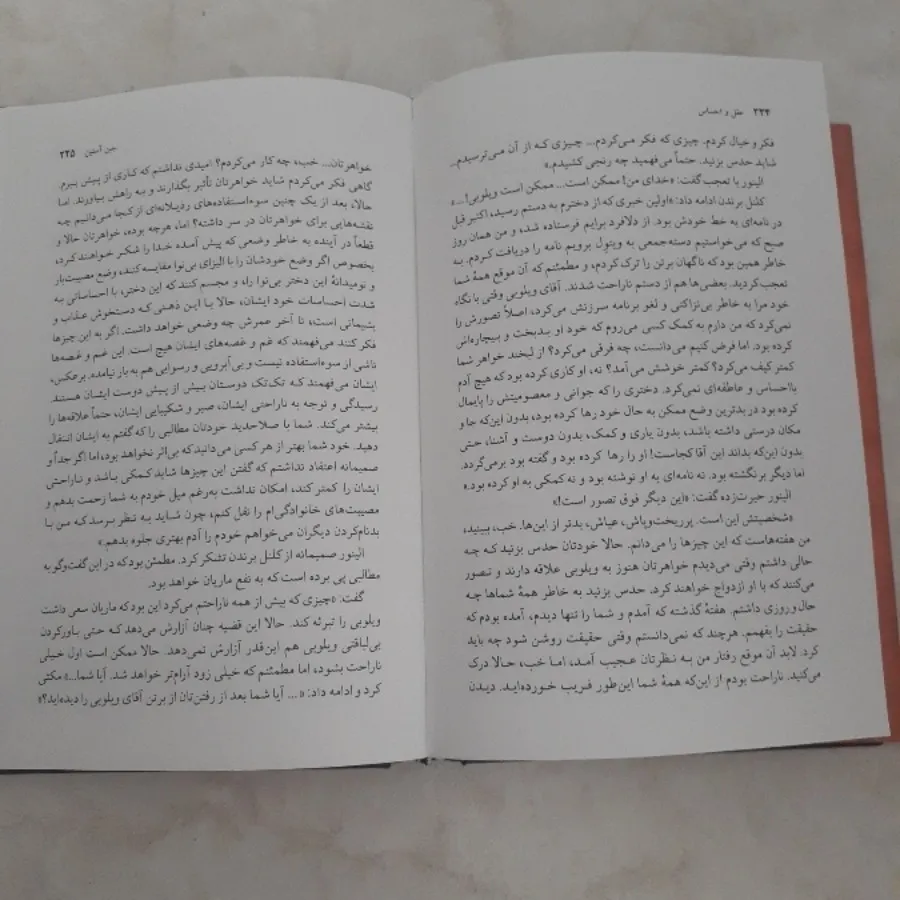 ۲۲۴ عقل و احساس
فکر و خیال کردم. چیزی که فکر می‌کردم... چیزی که از آن می‌ترسیدم...
شاید حدس بزنید. حتماً می‌فهمید چه رنجی کشیدم.»
الینور با تعجب گفت: «خدای من! ممکن است... ممکن است ویلوبی!...»
کلنل برندن ادامه داد: «اولین خبری که از دخترم به دستم رسید، اکتبر قبل
در نامه‌ای به خط خودش بود. از دلافرد برایم فرستاده شد، و من همان روز
صبح که می‌خواستیم دسته‌جمعی به ویتول برویم نامه را دریافت کردم. به
خاطر همین بود که ناگهان برتن را ترک کردم، و مطمئنم که آن موقع همهٔ شما
تعجب کردید. بعضی‌ها هم از دستم ناراحت شدند. آقای ویلوبی وقتی با نگاه
خود مرا به خاطر بی‌نزاکتی و لغو برنامه سرزنش می‌کرد، اصلاً تصورش را
نمی‌کرد که من دارم به کمک کسی می‌روم که خود او بدبخت و بیچاره‌اش
کرده بود. اما فرض کنیم می‌دانست، چه فرقی می‌کرد؟ از لبخند خواهر شما
کمتر کیف می‌کرد؟ کمتر خوشش می‌آمد؟ نه، او کاری کرده بود که هیچ آدم
بااحساس و عاطفه‌ای نمی‌کرد. دختری را که جوانی و معصومیتش را پایمال
کرده بود در بدترین وضع ممکن به حال خود رها کرده بود، بدون این‌که جا و
مکان درستی داشته باشد، بدون یاری و کمک، بدون دوست و آشنا، حتی
بدون این‌که بداند این آقا کجاست! او را رها کرده بود و گفته بود برمی‌گردد.
اما دیگر برنگشته بود. نه نامه‌ای به او نوشته بود و نه کمکی به او کرده بود.»
الینور حیرت‌زده گفت: «این دیگر فوق تصور است!»
«شخصیتش این است. پرریخت‌وپاش، عیاش، بدتر از این‌ها. خب، ببینید،
من هفته‌هاست که این چیزها را می‌دانم. حالا خودتان حدس بزنید که چه
حالی داشتم وقتی می‌دیدم خواهرتان هنوز به ویلوبی علاقه دارند و تصور
می‌کنند که با او ازدواج خواهند کرد. حدس بزنید به خاطر همهٔ شماها چه
حال و روزی داشتم. هفتهٔ گذشته که آمدم و شما را تنها دیدم، آمده بودم که
حقیقت را بفهمم. هرچند که نمی‌دانستم وقتی حقیقت روشن شود چه باید
کرد. لابد آن موقع رفتار من به نظرتان عجیب آمد، اما خب، حالا درک
می‌کنید. ناراحت بودم از این‌که همهٔ شما این‌طور فریب خورده‌اید. دیدن
جین آستین ۲۲۵
خواهرتان... خب، چه کار می‌کردم؟ امیدی نداشتم که کاری از پیش ببرم.
گاهی فکر می‌کردم شاید خواهرتان تأثیر بگذارند و به راهش بیاورند. اما
حالا، بعد از یک چنین سوءاستفاده‌های رذیلانه‌ای از کجا می‌دانیم چه
نقشه‌هایی برای خواهرتان در سر داشته؟ اما، هرچه بوده، خواهرتان حالا و
قطعاً در آینده به خاطر وضعی که پیش آمده خدا را شکر خواهند کرد،
بخصوص اگر وضع خودشان را با الیزای بی‌نوا مقایسه کنند، وضع مصیبت‌بار
و نومیدانهٔ این دختر بی‌نوا را، و مجسم کنند که این دختر، با احساساتی به
شدت احساسات خود ایشان، حالا با این ذهنی که دستخوش عذاب و
پشیمانی است، تا آخر عمرش چه وضعی خواهد داشت. اگر به این چیزها
فکر کنند می‌فهمند که غم و غصه‌های ایشان هیچ است. این غم و غصه‌ها
ناشی از سوءاستفاده نیست و بی‌آبرویی و رسوایی هم به بار نیامده. برعکس،
ایشان می‌فهمند که تک‌تک دوستان بیش از پیش دوست ایشان هستند.
رسیدگی و توجه به ناراحتی ایشان، صبر و شکیبایی ایشان، حتماً علاقه‌ها را
بیشتر می‌کند. شما با صلاحدید خودتان مطالبی را که گفتم به ایشان انتقال
دهید. خود شما بهتر از هر کسی می‌دانید که بی‌اثر نخواهد بود، اما اگر جداً و
صمیمانه اعتقاد نداشتم که گفتن این چیزها شاید کمکی باشد و ناراحتی
ایشان را کمتر کند، امکان نداشت به‌رغم میل خودم به شما زحمت بدهم و
مصیبت‌های خانوادگی‌ام را نقل کنم، چون شاید به نظر برسد که من با
بدنام‌کردن دیگران می‌خواهم خودم را آدم بهتری جلوه بدهم.»
الینور صمیمانه از کلنل برندن تشکر کرد. مطمئن بود که در این گفت‌وگو به
مطالبی پی برده است که به نفع ماریان خواهد بود.
گفت: «چیزی که بیش از همه ناراحتم می‌کرد این بود که ماریان سعی داشت
ویلوبی را تبرئه کند. حالا این قضیه چنان آزارش می‌دهد که حتی باورکردن
بی‌لیاقتی ویلوبی هم این‌قدر آزارش نمی‌دهد. حالا ممکن است اول خیلی
ناراحت بشود، اما مطمئنم که خیلی زود آرام‌تر خواهد شد. آیا شما...» مکثی
کرد و ادامه داد: «... آیا شما بعد از رفتن‌تان از برتن آقای ویلوبی را دیده‌اید؟»